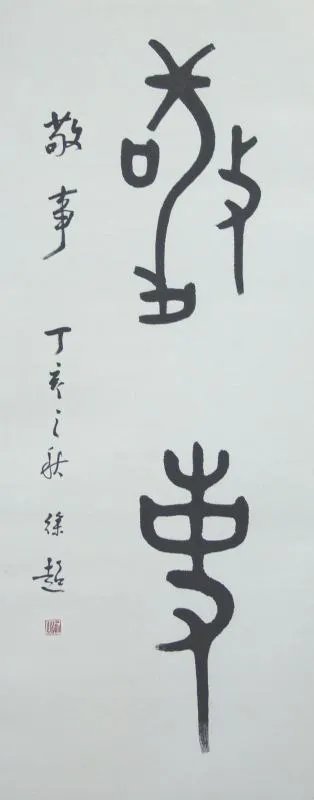 敬事
敬事 丁亥之秋 徐超